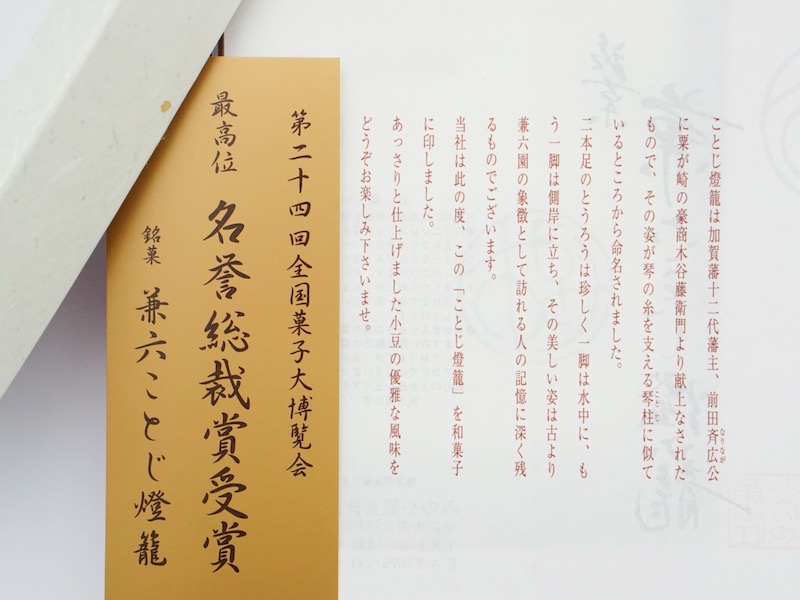 ことじ燈籠は加賀藩十二代藩主、前田斉広公
なりなが
に粟が崎の豪商木谷藤衛門より献上なされた
もので、その姿が琴の糸を支える琴柱に似て
ことじ
いるところから命名されました。
二本足のとうろうは珍しく一脚は水中に、も
う一脚は側岸に立ち、その美しい姿は古より
兼六園の象徴として訪れる人の記憶に深く残
るものでございます。
当社は此の度、この「ことじ燈籠」を和菓子
に印しました。
あっさりと仕上げました小豆の優雅な風味を
どうぞお楽しみ下さいませ。
第二十四回全国菓子大博覧会
最高位 名誉総裁賞受賞
銘菓 兼六ことじ燈籠